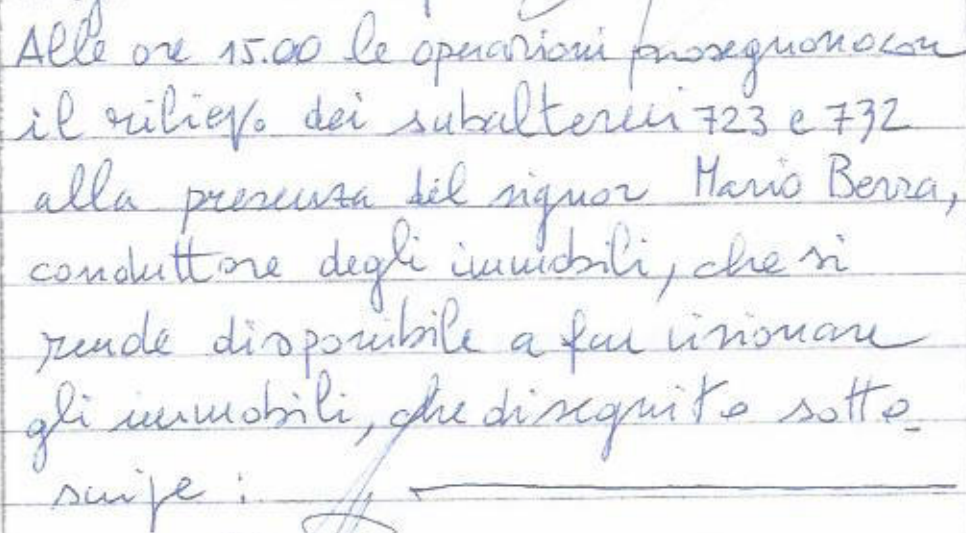 Alle ore 15.00 le operazioni proseguono con
il rilievo dei subalterni 723 e 732
alla presenza del signor Mario Berra,
conduttore degli immobili, che si
rende disponibile a far visionare
gli immobili, che di seguito sotto_
scrive :